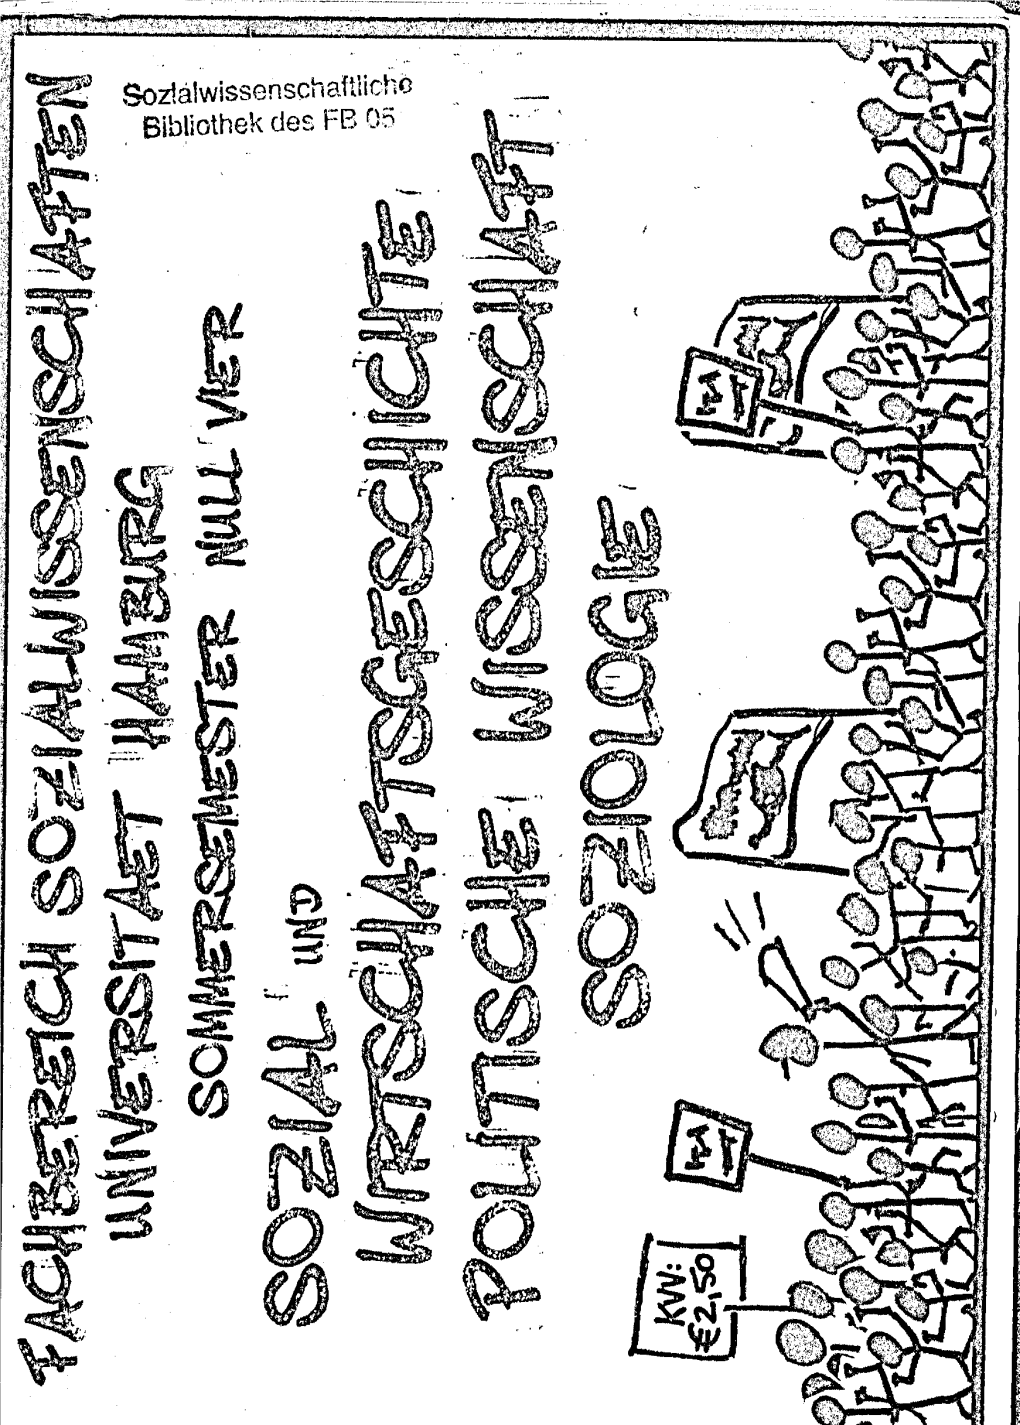 Sozialwissenschaftliche
Bibliothek des FB 05
FACHBEREICH SOZIALWISSENSCHAFTEN
UNIVERSITAET HAMBURG
SOMMERSEMESTER NULL VIER
SOZIAL UND
WIRTSCHAFTSGESCHICHTE
POLITISCHE WISSENSCHAFT
SOZIOLOGIE
KVV:
€2,50